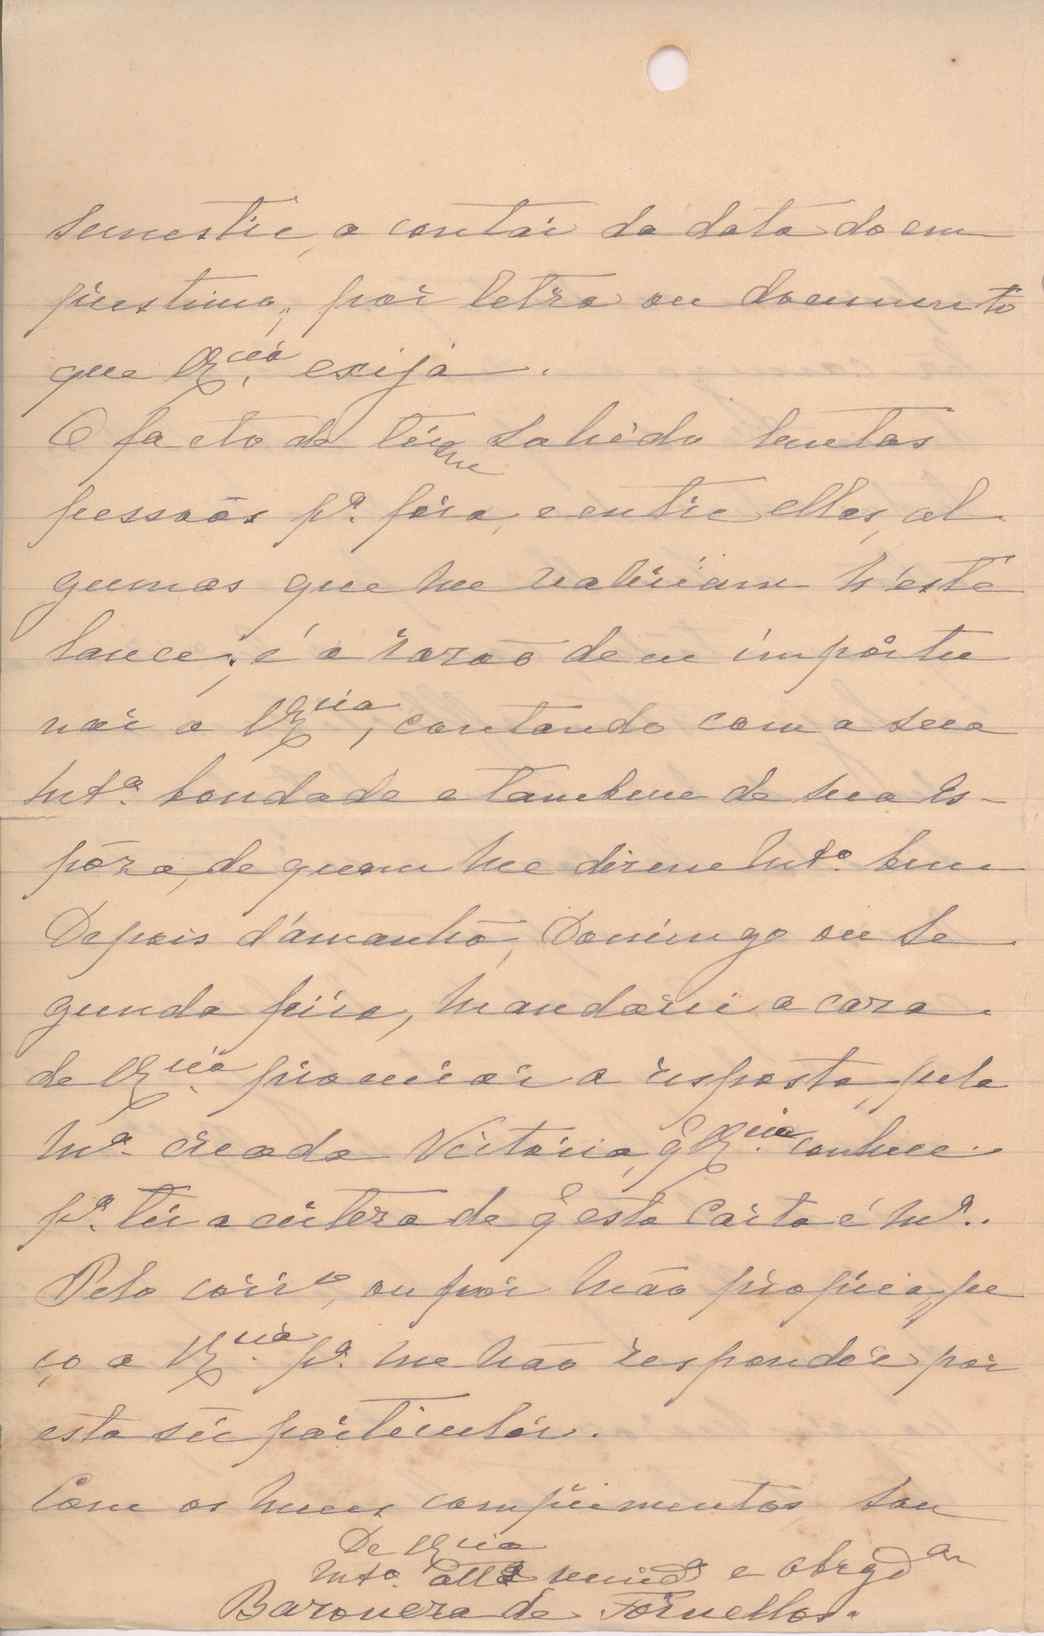 semestre, a contar da data do em
prestimo, por letra ou documento
que VExª. cia exija.
O facto de ter-me sahido tantas
pessoas pª. fóra, e entre ellas, al
gumas que me valeriam n'este
lance, é a razaõ de eu importu
nar a VExcia, contando com a sua
mtª. bondade e tambem de sua Es-
pôza, de quem me dizem mtº. bem
Depois d'amanhã, Domingo ou Se
gunda feira, mandarei a caza
de VExcia. procurar a resposta, pela
mª. creada Victoria, q̃ VExcia. conhece.
pª. ter a certeza de q̃ esta Carta é mª.
Pelo corrº, ou por mão propria, pe
ço a VExcia. pª. me não responder por
esta ser particular.
Com os meus comprimentos, sou
De VExcia
Mtº. attª e obrgdª
Baroneza de Fornellos.